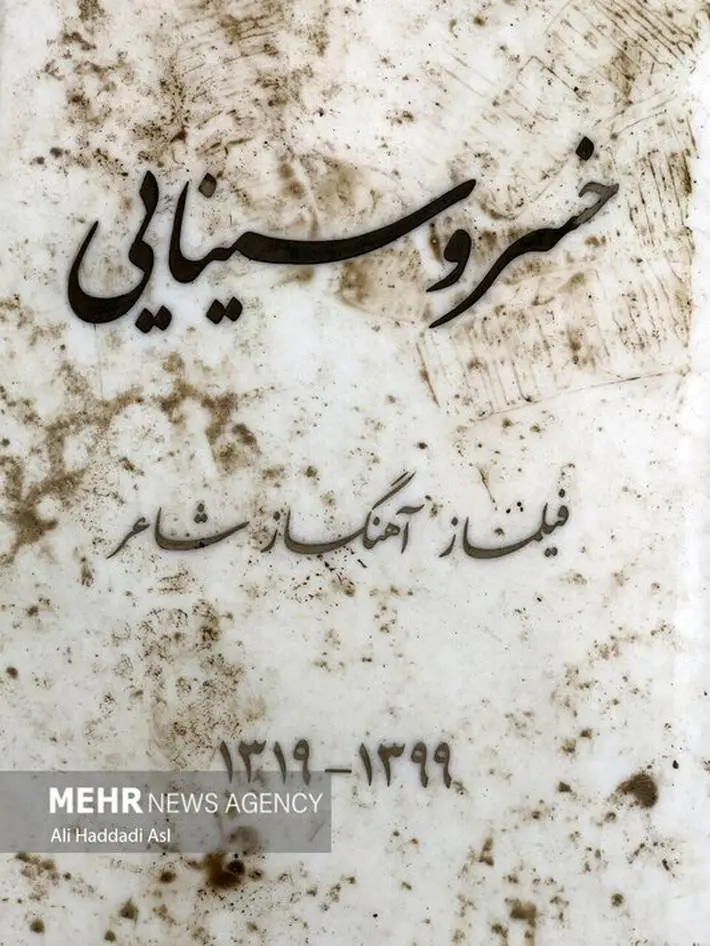 خسرو سینایی
فیلمساز آهنگساز شاعر
۱۳۱۹-۱۳۹۹
MEHR NEWS AGENCY
Ali Haddadi Asl